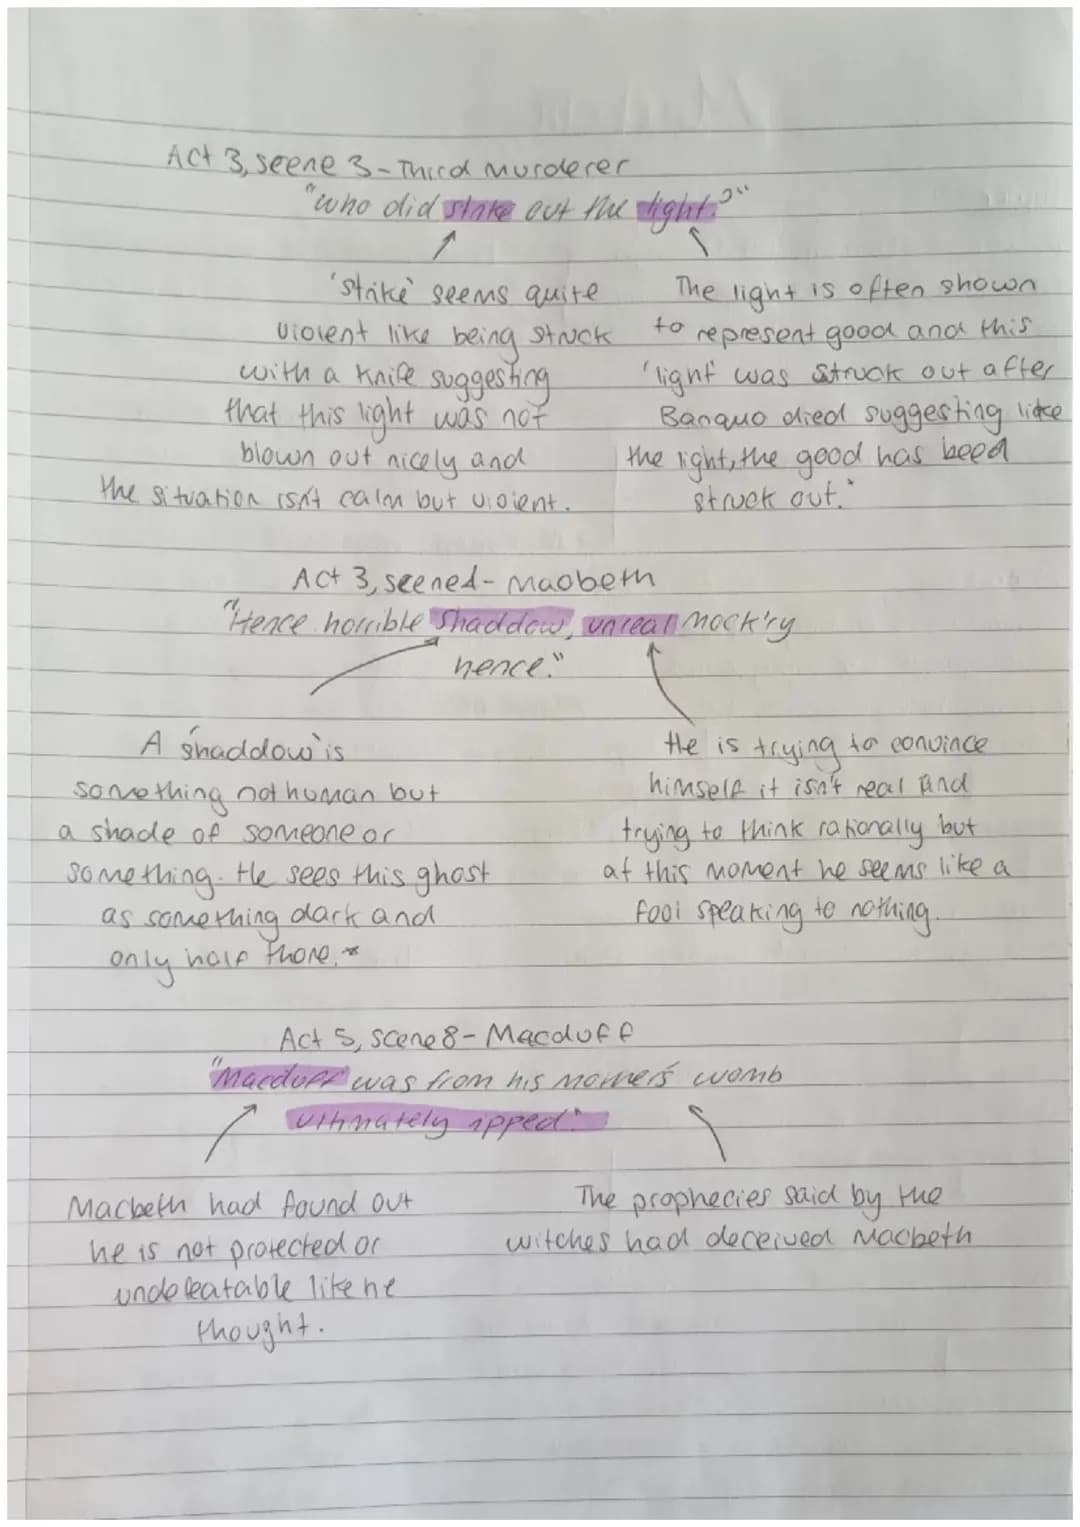 Act 3, scene 3 - Third Murderer
"who did strike out the light?"
'strike' seems quite
violent like being struck
with a knife suggesting
that this light was not
blown out nicely and
the situation isn't calm but violent.
The light is often shown
to represent good and this
'light' was struck out after
Banquo died suggesting like
the light, the good has beed
struck out."
Act 3, scene 4 - Macbeth
"Hence horrible shaddow, unreal mock'ry
hence."
A 'shaddow' is
something not human but
a shade of someone or
something. He sees this ghost
as something dark and
only half there.*
He is trying to convince
himself it isn't real and
trying to think rationally but
at this moment he seems like a
fool speaking to nothing.
Act 5, scene 8 - Macduff
"Macduff was from his mother's womb
ultimately ripped."
Macbeth had found out
he is not protected or
undefeatable like he
thought.
The prophecies said by the
witches had deceived Macbeth